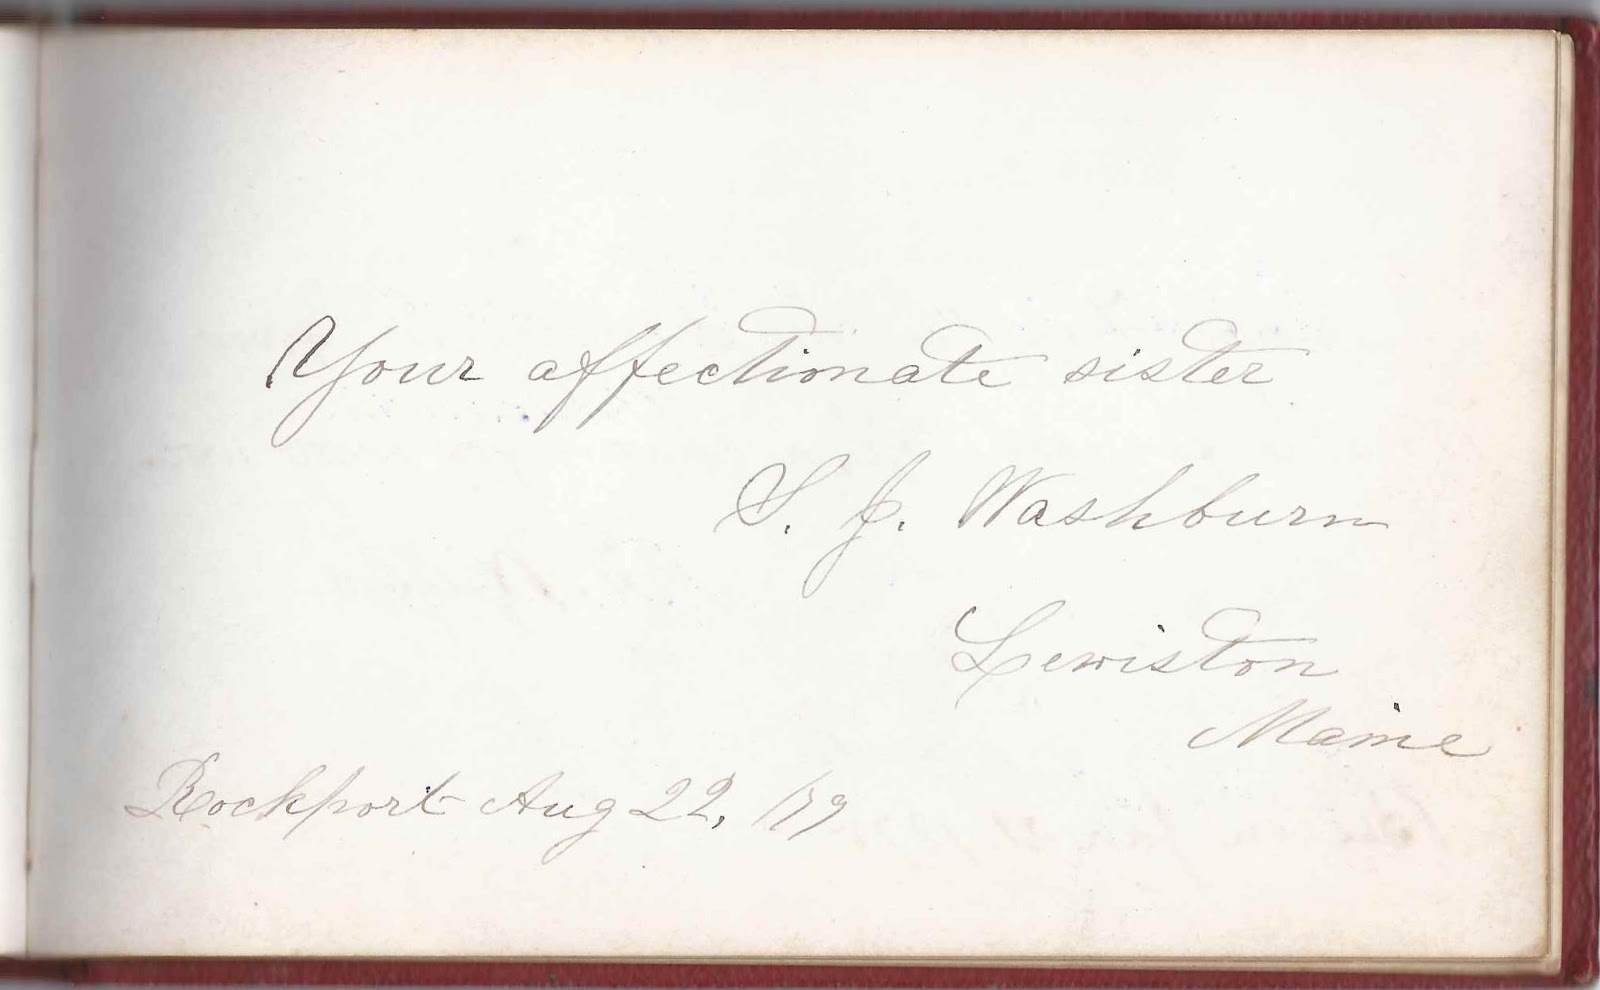 Your affectionate sister
S. J. Washburn
Lewiston
Maine
Rockport Aug 22, /79